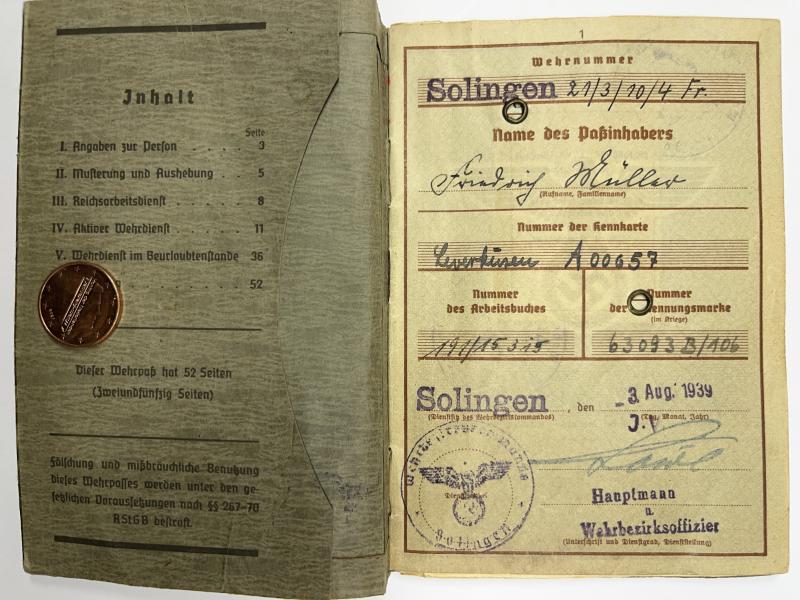 Inhalt
Seite
I. Angaben zur Person . . . . 3
II. Musterung und Aushebung . . 5
III. Reichsarbeitsdienst . . . . . 8
IV. Aktiver Wehrdienst . . . . 11
V. Wehrdienst im Beurlaubtenstande 36
52
Dieser Wehrpaß hat 52 Seiten
(Zweiundfünfzig Seiten)
Fälschung und mißbräuchliche Benutzung
dieses Wehrpasses werden unter den ge-
setzlichen Voraussetzungen nach §§ 267-70
RStGB bestraft.
1
Wehrnummer
Solingen 21/3/10/4 Fr.
Name des Paßinhabers
Friedrich Müller
(Rufname, Familienname)
Nummer der Kennkarte
Leverkusen A00657
Nummer
des Arbeitsbuches
191/15315
Nummer
der Erkennungsmarke
(im Kriege)
63093 B/106
Solingen, den - 3. Aug. 1939
(Dienstsitz des Wehrbezirkskommandos) (Tag, Monat, Jahr)
J.V.
Hauptmann
u
Wehrbezirksoffizier
(Unterschrift und Dienstgrad, Dienststellung)
Solingen